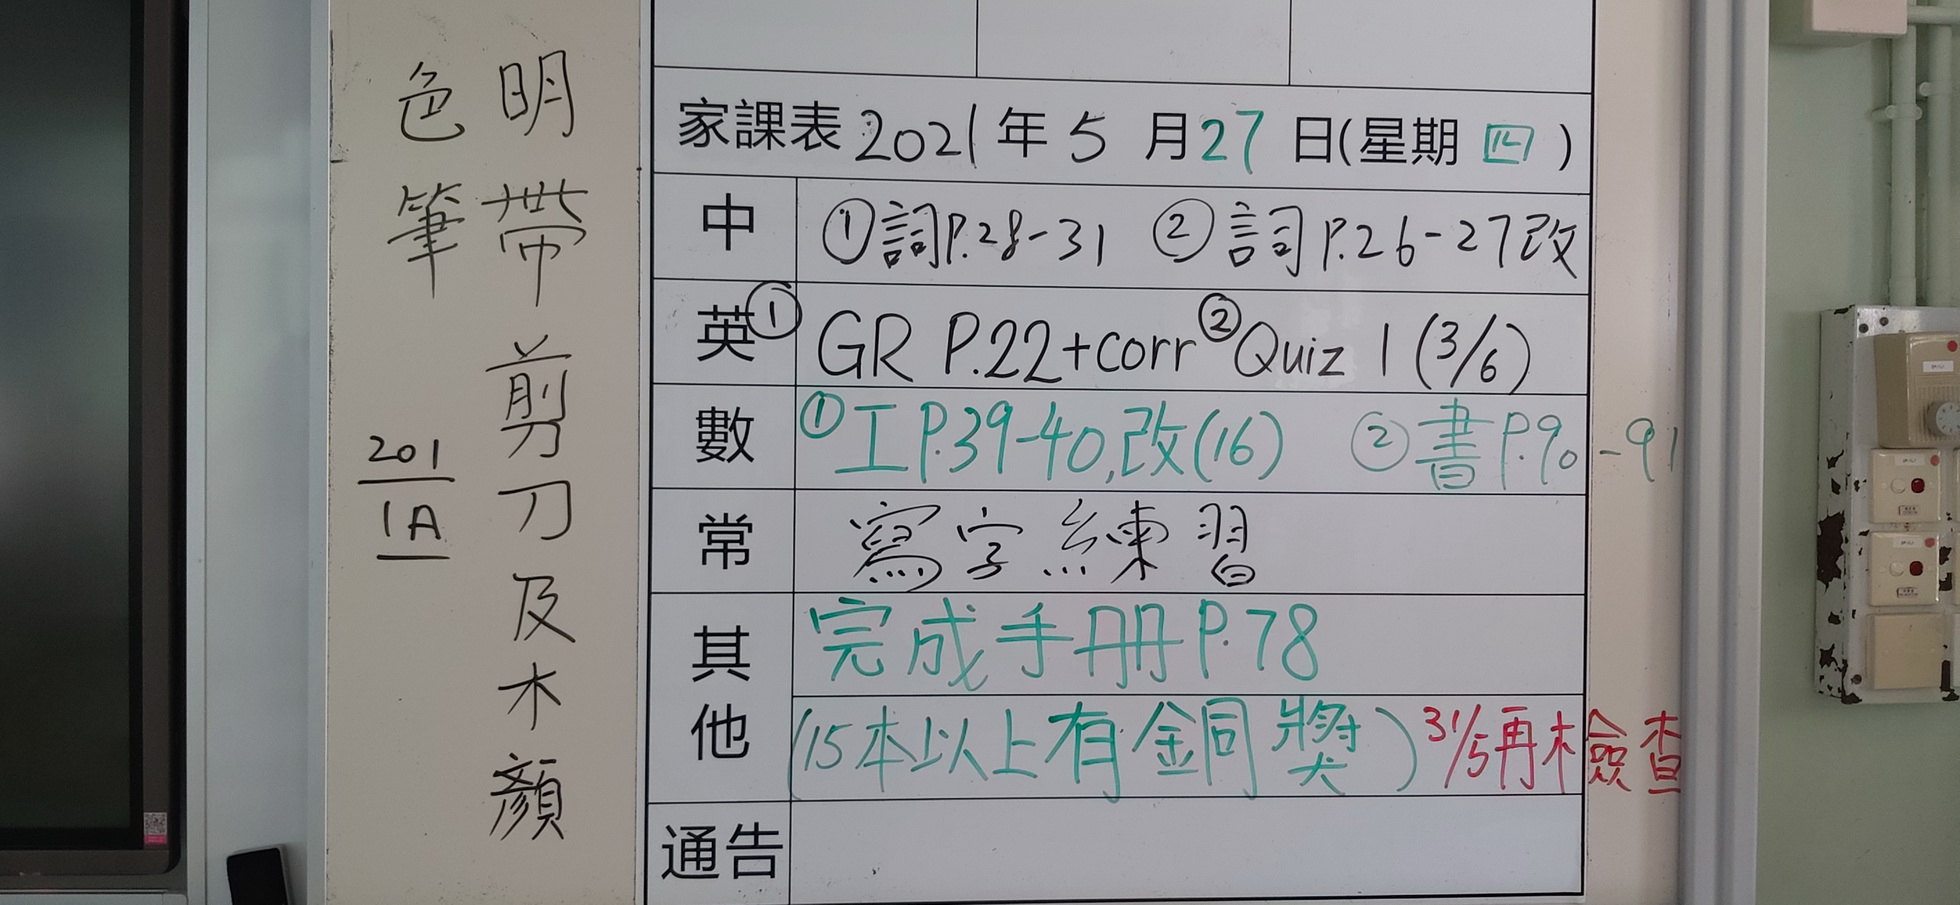 明帶剪刀及木顏
色筆
201
1A
家課表 2021 年 5 月 27 日(星期 四 )
中 ①詞P.28-31 ②詞P.26-27改
英 ①GR P.22+corr ②Quiz 1 (3/6)
數 ①工P.39-40,改(16) ②書P.90-91
常 寫字練習
其他 完成手册P.78
(15本以上有銅獎) 31/5再檢查
通告